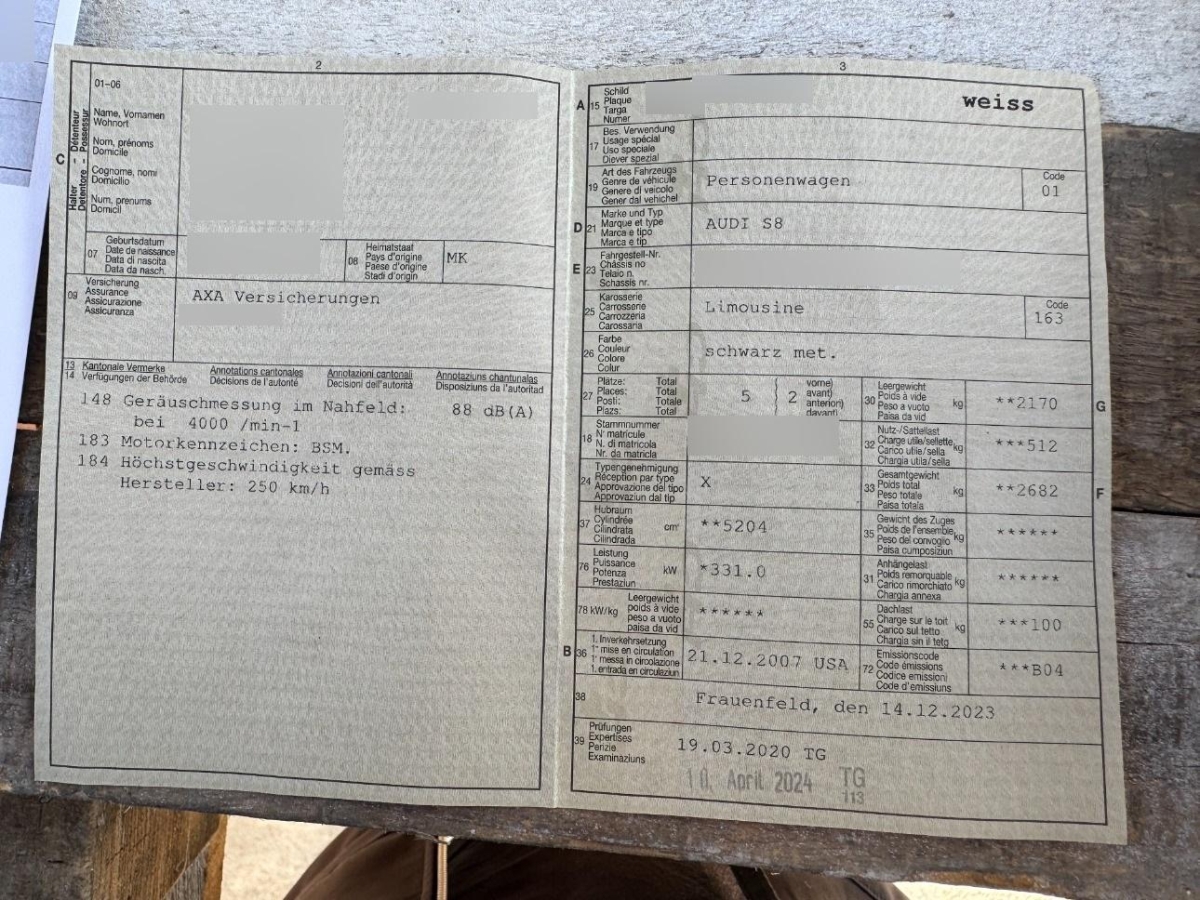 2
01-06
C
Halter - Détenteur
Detentore - Possessur
Name, Vornamen
Wohnort
Nom, prénoms
Domicile
Cognome, nomi
Domicilio
Num, prenums
Domicil
07
Geburtsdatum
Date de naissance
Data di nascita
Data da nasch.
08
Heimatstaat
Pays d'origine
Paese d'origine
Stadi d'origin
MK
09
Versicherung
Assurance
Assicurazione
Assicuranza
AXA Versicherungen
13 Kantonale Vermerke Annotations cantonales Annotazioni cantonali Annotaziuns chantunalas
14 Verfügungen der Behörde Décisions de l'autorité Decisioni dell'autorità Disposiziuns da l'autoritad
148 Geräuschmessung im Nahfeld: 88 dB(A)
bei 4000 /min-1
183 Motorkennzeichen: BSM.
184 Höchstgeschwindigkeit gemäss
Hersteller: 250 km/h
3
A 15
Schild
Plaque
Targa
Numer
weiss
17
Bes. Verwendung
Usage spécial
Uso speciale
Diever spezial
19
Art des Fahrzeugs
Genre de véhicule
Genere di veicolo
Gener dal vehichel
Personenwagen
Code
01
D 21
Marke und Typ
Marque et type
Marca e tipo
Marca e tip
AUDI S8
E 23
Fahrgestell-Nr.
Châssis no
Telaio n.
Schassis nr.
25
Karosserie
Carrosserie
Carrozzeria
Carossaria
Limousine
Code
163
26
Farbe
Couleur
Colore
Colur
schwarz met.
27
Plätze: Total
Places: Total
Posti: Totale
Plazs: Total
5 { 2
vorne)
avant)
anteriori)
davant)
30
Leergewicht
Poids à vide
Peso a vuoto
Paisa da vid
kg
**2170
G
18
Stammnummer
N° matricule
N. di matricola
Nr. da matricla
32
Nutz-/Sattellast
Charge utile/sellette
Carico utile/sella
Chargia utila/sella
kg
***512
24
Typengenehmigung
Réception par type
Approvazione del tipo
Approvaziun dal tip
X
33
Gesamtgewicht
Poids total
Peso totale
Paisa totala
kg
**2682
F
37
Hubraum
Cylindrée
Cilindrata
Cilindrada
cm³
**5204
35
Gewicht des Zuges
Poids de l'ensemble
Peso del convoglio
Paisa cumposiziun
kg
******
76
Leistung
Puissance
Potenza
Prestaziun
kW
*331.0
31
Anhängelast
Poids remorquable
Carico rimorchiato
Chargia annexa
kg
******
78 kW/kg
Leergewicht
poids à vide
peso a vuoto
paisa da vid
******
55
Dachlast
Charge sur le toit
Carico sul tetto
Chargia sin il tetg
kg
***100
B 36
1. Inverkehrsetzung
1re mise en circulation
1a messa in circolazione
1. entrada en circulaziun
21.12.2007 USA
72
Emissionscode
Code émissions
Codice emissioni
Code d'emissiuns
***B04
38
Frauenfeld, den 14.12.2023
39
Prüfungen
Expertises
Perizie
Examinaziuns
19.03.2020 TG
10. April 2024 TG
113